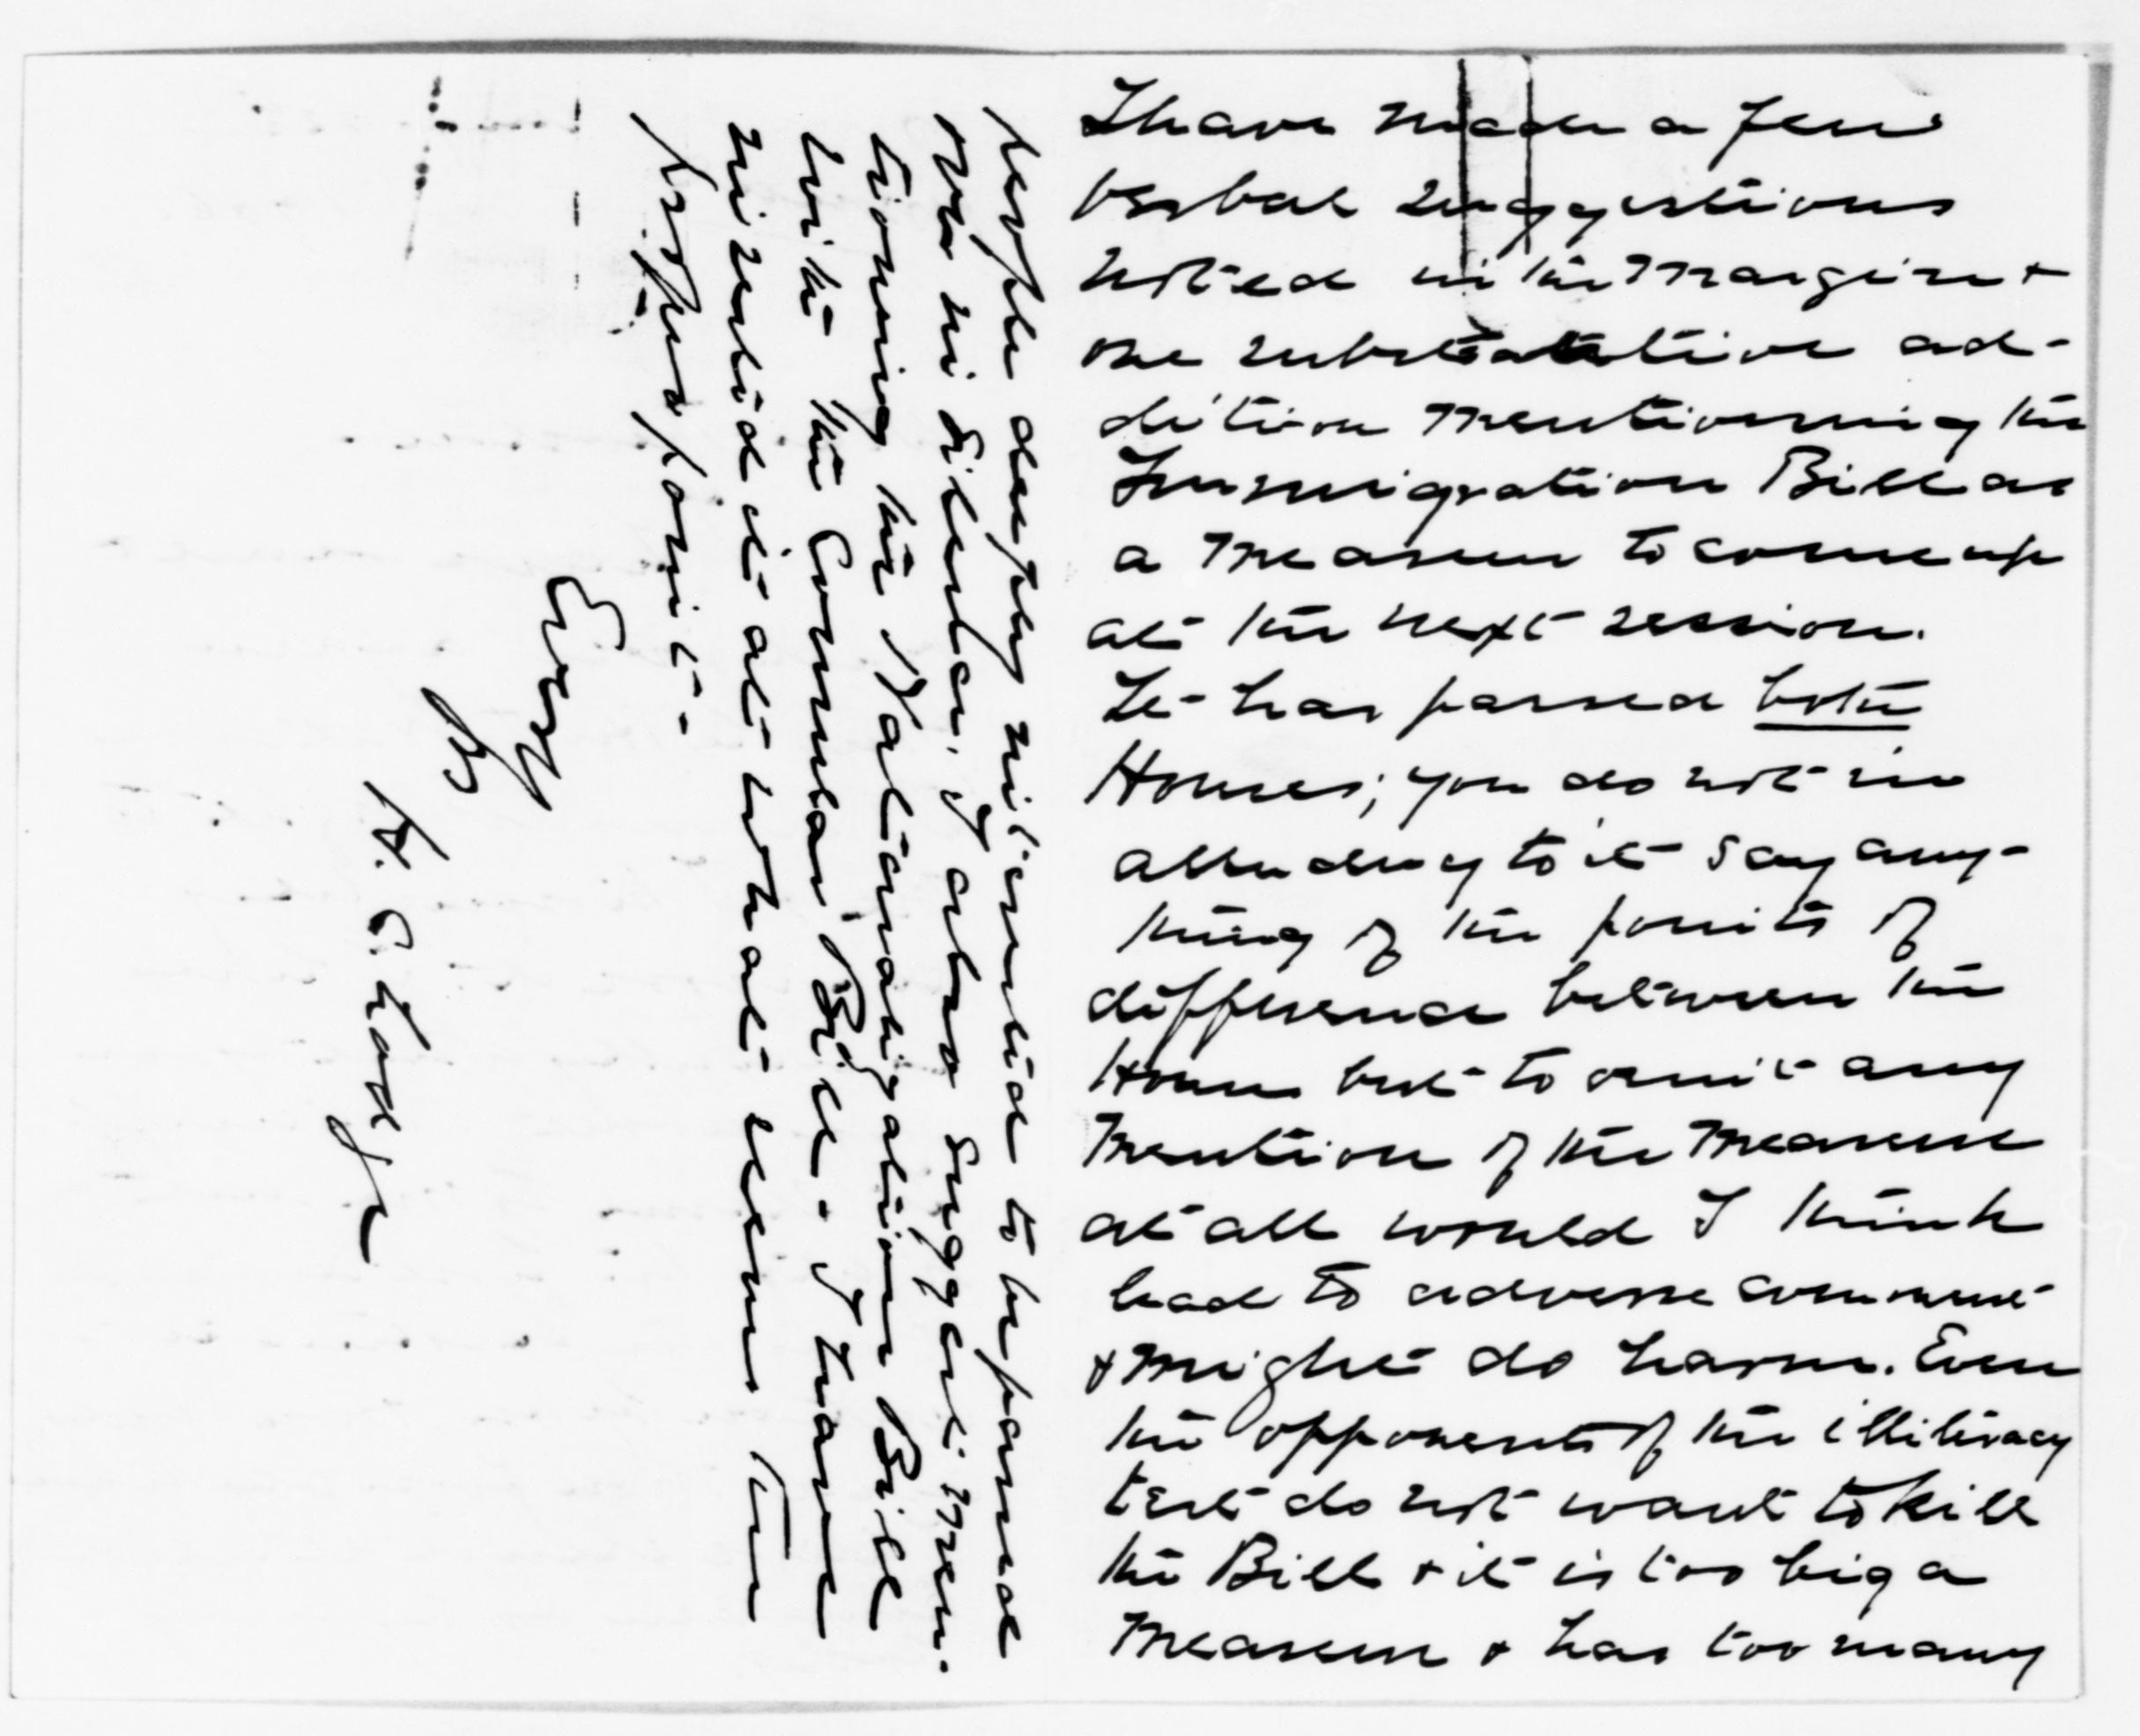 I have made a few
verbal suggestions
noted in the margin +
one substantative ad-
dition mentioning the
Immigration Bill as
a measure to come up
at the next session.
It has passed both
Houses; you do not in
alluding to it say any-
thing of the points of
difference between the
Houses but to omit any
mention of the measure
at all would I think
lead to adverse comment
+ might do harm. Even
the opponents of the illiteracy
test do not want to kill
the Bill + it is too big a
measure + has too many
people deeply interested to be passed
over in silence. I also suggest men-
tioning the Naturalization Bill
with the Consular Bill. I have
inserted it at what seems the
proper point.
Evers
H. C. Lodge